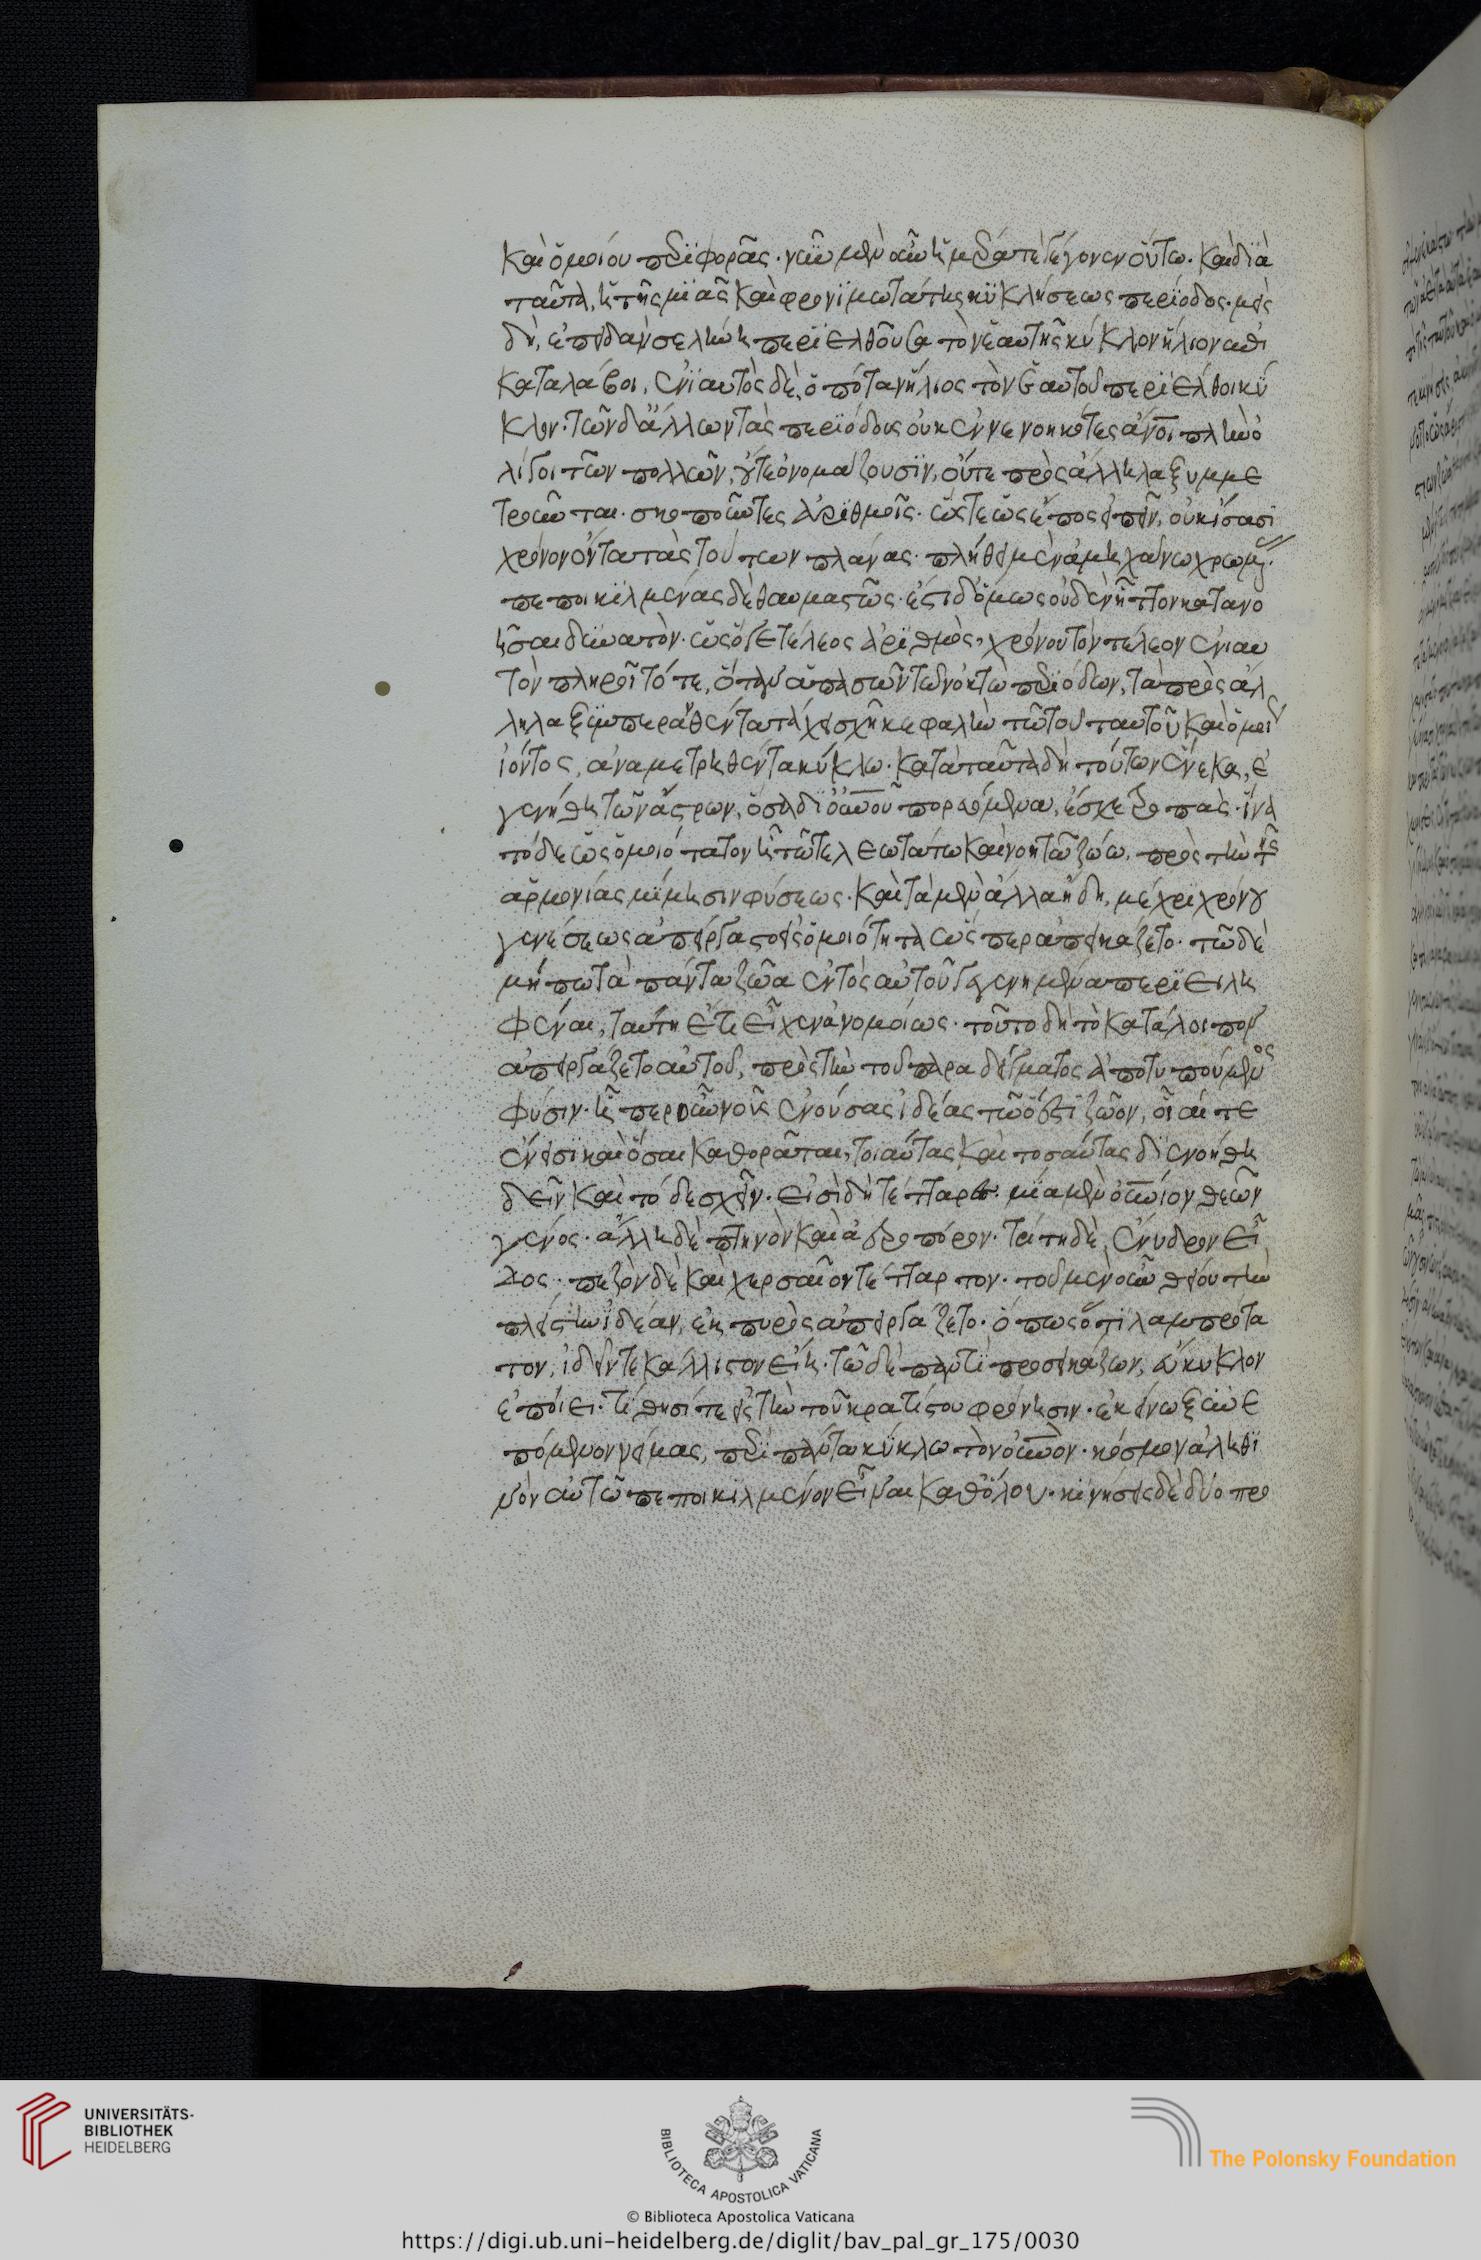 καὶ ὁμοίου περιφορᾶς. νὺξ μὲν οὖν ἡμέρά τε γέγονεν οὕτω. καὶ διὰ
ταῦτα, ἡ τῆς μιᾶς καὶ φρονιμωτάτης κυκλήσεως περίοδος. μεὶς
δὴ, ἐπειδὰν σελήνη περιελθοῦσα τὸν ἑαυτῆς κύκλον ἥλιον ἐπι
καταλάβοι, ἐνιαυτὸς δὲ, ὁπόταν ἥλιος τὸν ἑαυτοῦ περιέλθοι κύ
κλον. τῶν δ' ἄλλων τὰς περιόδους οὐκ ἐννενοηκότες ἄνοι πλὴν ὀ
λίγοι τῶν πολλῶν, οὔτε ὀνομάζουσιν, οὔτε πρὸς ἄλληλα ξυμμε
τροῦνται. σκοποῦντες ἀριθμοῖς. ὥστε ὡς ἔπος εἰπεῖν, οὐκ ἴσασι
χρόνον ὄντα τὰς τούτων πλάνας. πλήθει μὲν ἀμηχάνω χρωμένας.
πεποικιλμένας δὲ θαυμαστῶς. ἔστι δ' ὅμως οὐδὲν ἧττον κατανο
ῆσαι δυνατὸν. ὡς ὅ γε τέλεος ἀριθμὸς, χρόνου τὸν τέλεον ἐνιαυ
τὸν πληροῖ τότε, ὅταν ἁπασῶν τῶν ὀκτὼ περιόδων, τὰ πρὸς ἄλ
ληλα ξυμπερανθέντα τάχει σχῆ κεφαλὴν τῶ τοῦ ταυτοῦ καὶ ὁμοί
ιόντος, ἀναμετρηθέντα κύκλω. κατὰ ταῦτα δὴ τούτων ἕνεκα, ἐ
γενήθη τῶν ἄστρων, ὅσα δι' οὐνοῦ πορευόμενα, ἔσχε τροπάς. ἵνα
τόδε ὡς ὁμοιότατον ἦ τῶ τελεωτάτω καὶ νοητῶ ζώω, πρὸς τὴν τῆς
αρμονίας μίμησιν φύσεως. καὶ τὰ μὲν ἄλλα ἤδη, μέχρι χρόνου
γενέσεως ἀπείργαστο εἰς ὁμοιότητα ὧπερ ἀπεικάζετο. τῶ δὲ
μήπω τὰ πάντα ζῶα ἐντὸς αὐτοῦ γεγενημένα περιειλη
φέναι, ταύτη ἔτι εἶχεν ἀνομοίως. τοῦτο δὴ τὸ κατάλοιπον
ἀπειργάζετο αὐτοῦ, πρὸς τὴν τοῦ παραδείγματος ἀποτυπούμενος
φύσιν. ἧπερ οὖν νοῦς ἐνούσας ἰδέας τῶ ὅ ἐστι ζῶον, οἷαί τε
ἔνεισι καὶ ὅσαι καθορᾶται, τοιαύτας καὶ τοσαύτας διενοήθη
δεῖν καὶ τόδε σχεῖν. εἰσὶ δὴ τέτταρες. μία μὲν οὐνίον θεῶν
γένος. ἄλλη δὲ πτηνὸν καὶ ἀεροπόρον. τρίτη δὲ ἔνυδρον εἶ
δος. πεζὸν δὲ καὶ χερσαῖον τέταρτον. τοῦ μὲν οὖν θείου τὴν
πλείστην ἰδέαν, ἐκ πυρὸς ἀπειργάζετο. ὅπως ὅτι λαμπρότα
τον, ἰδεῖν τε κάλλιστον εἴη. τῶ δὲ παντὶ προσεικάζων, εὔκυκλον
ἐποίει. τίθησί τε εἰς τὴν τοῦ κρατίστου φρόνησιν. ἐκείνω ξυνε
πόμενον νείμας, περὶ πάντα κύκλω τὸν οὐνόν. κόσμον ἀληθι
νὸν αὐτῶ πεποικιλμένον εἶναι καθόλου. κινήσεις δὲ δύο προ
UNIVERSITÄTS-
BIBLIOTHEK
HEIDELBERG
BIBLIOTECA APOSTOLICA VATICANA
The Polonsky Foundation
© Biblioteca Apostolica Vaticana
https://digi.ub.uni-heidelberg.de/diglit/bav_pal_gr_175/0030